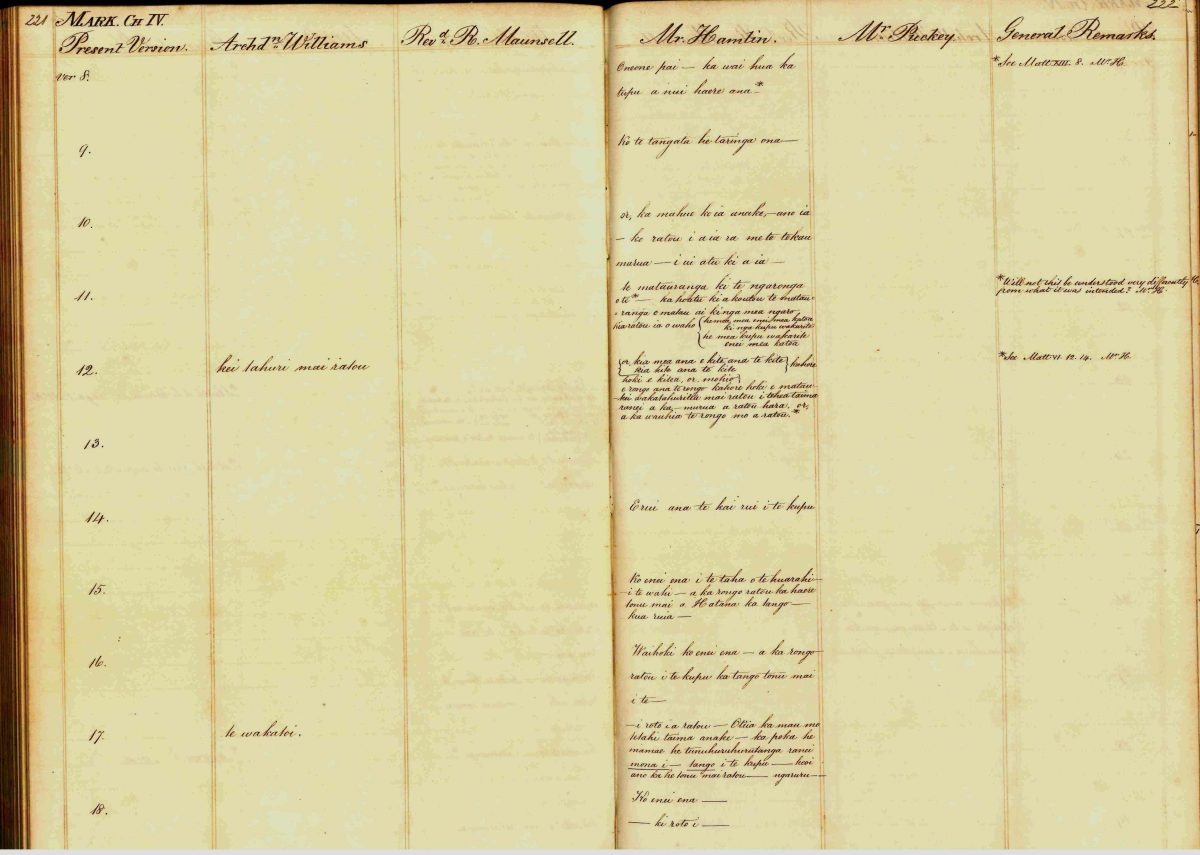 221 MARK. CH IV. 222
Present Version. Archdn. Williams Revd. R. Maunsell. Mr. Hamlin. Mr Puckey General Remarks.
ver 8. Oneone pai — ka wai hua ka *See Matt XIII. 8. Mr. H.
tupu a nui haere ana—*
9. Ko te tangata he taringa ona—
10. or, ka mahue ko ia anake,—ano ia
— ko ratou i a ia ra me te tekau
marua — i ui atu ki a ia —
11. te matauranga ki te ngaronga *Will not this be understood very differently
o te* — ka hoatu ki a koutou te matau- from what it was intended? Mr. H.
ranga e matau ai ki nga mea ngaro
kia ratou ia o waho { he mea, mea enei mea katoa
ki nga kupu wakarite
he mea kupu wakarite
enei mea katoa
12. hei tahuri mai ratou { or kia mea ana e kite, ana te kite } kahore *See Matt VI. 12. 14. Mr. H.
kia kite ana te kite
hoki e kitea, or, mohio }
e rongo ana te rongo kahore hoki e matau
mai ratou i tehea taima
ranei a ka — murua a ratou hara, or,
a ka te rongo mo a ratou.*
13.
14. E rui ana te kai rui i te kupu
15. Ko enei ena i te taha o te huarahi—
— i te wahi — a ka rongo ratou ka haere
tonu mai a Hatana ka tango —
kua ruia —
16. Waihoki ko enei ena — a ka rongo
ratou i te kupu ka tango tonu mai
i te —
17. te wakatoi. — i roto i a ratou — Otiia ka mau mo
tetahi taima anake — ka poka he
mamae he ranei
mona i — tango i te kupu — heoi
ano ka he tonu mai ratou — ngaruru —
18. Ko enei ena —
— ki roto i —